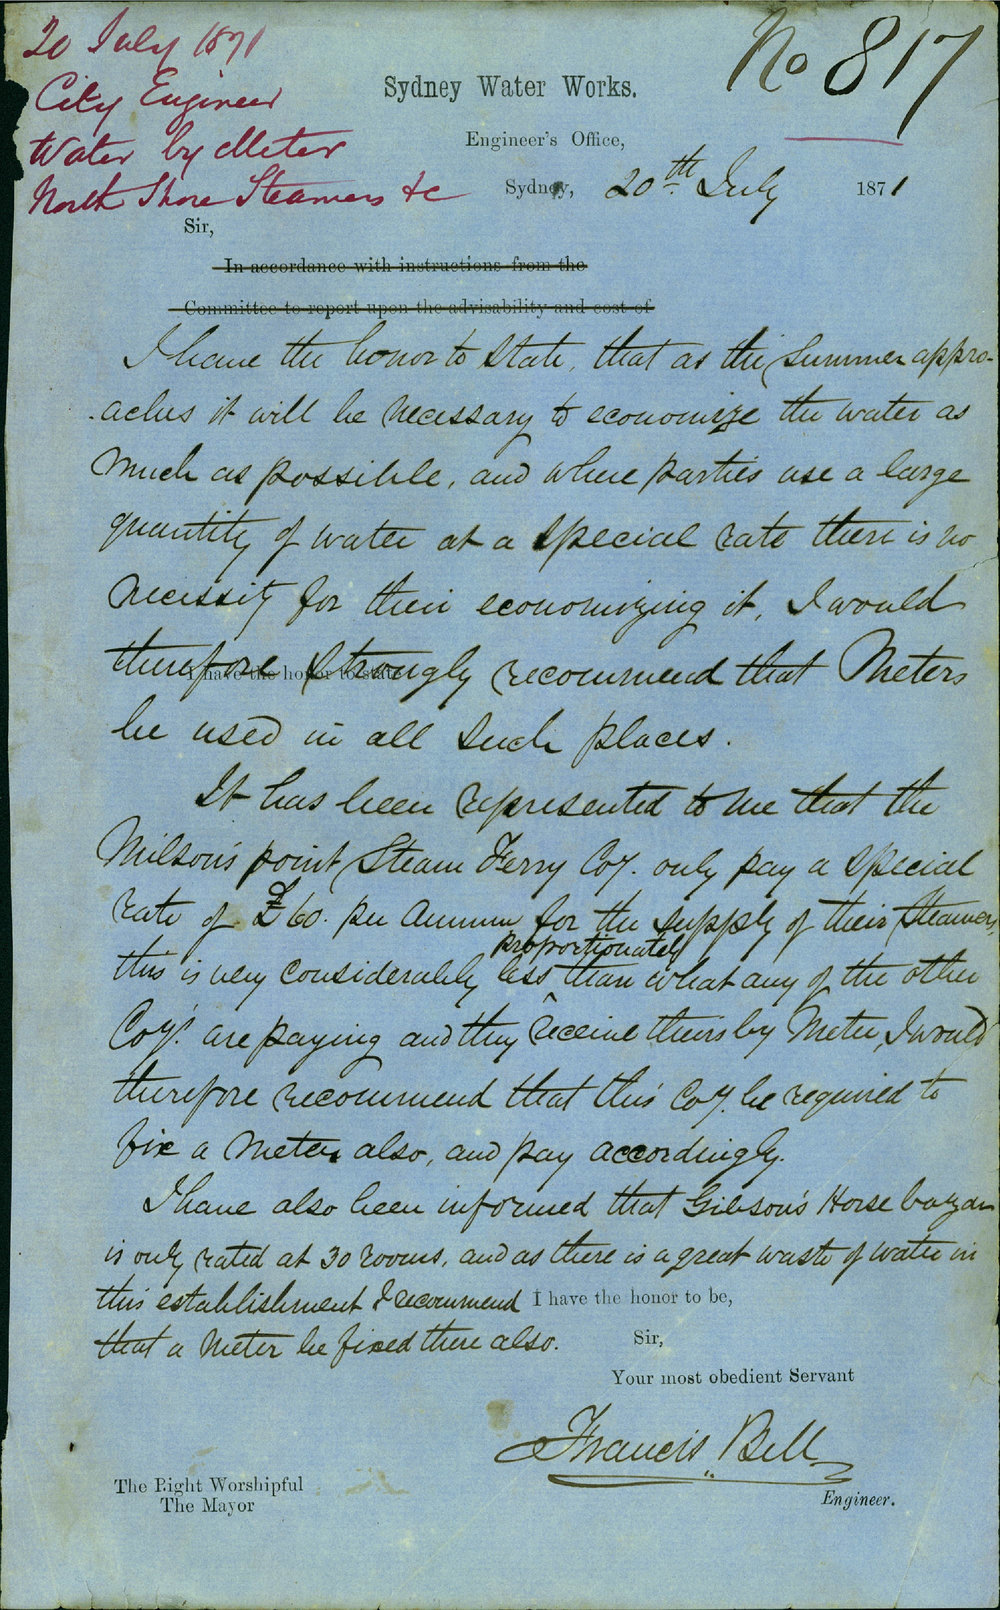 20 July 1871
City Engineer
Water by Meter
North Shore Steamers &c
No 817
Sydney Water Works.
Engineer's Office,
Sydney, 20th July 1871
Sir,
In accordance with instructions from the
Committee to report upon the advisability and cost of
I have the honor to state, that as the Summer appro-
-aches it will be necessary to economize the water as
much as possible, and where parties use a large
quantity of water at a special rate there is no
necessity for their economizing it, I would
therefore strongly recommend that Meters
I have the honor to state
be used in all such places.
It has been represented to me that the
Milson's point Steam Ferry Coy. only pay a special
rate of £60. per Annum for the supply of their Steamers,
proportionately
this is very considerably less than what any of the other
Coys. are paying and they receive theirs by Meter, I would
therefore recommend that this Coy. be required to
fix a Meter also, and pay accordingly.
I have also been informed that Gibson's Horse bazaar
is only rated at 30 rooms, and as there is a great waste of water in
this establishment I recommend I have the honor to be,
that a Meter be fixed there also. Sir,
Your most obedient Servant
Francis Bell
Engineer.
The Right Worshipful
The Mayor